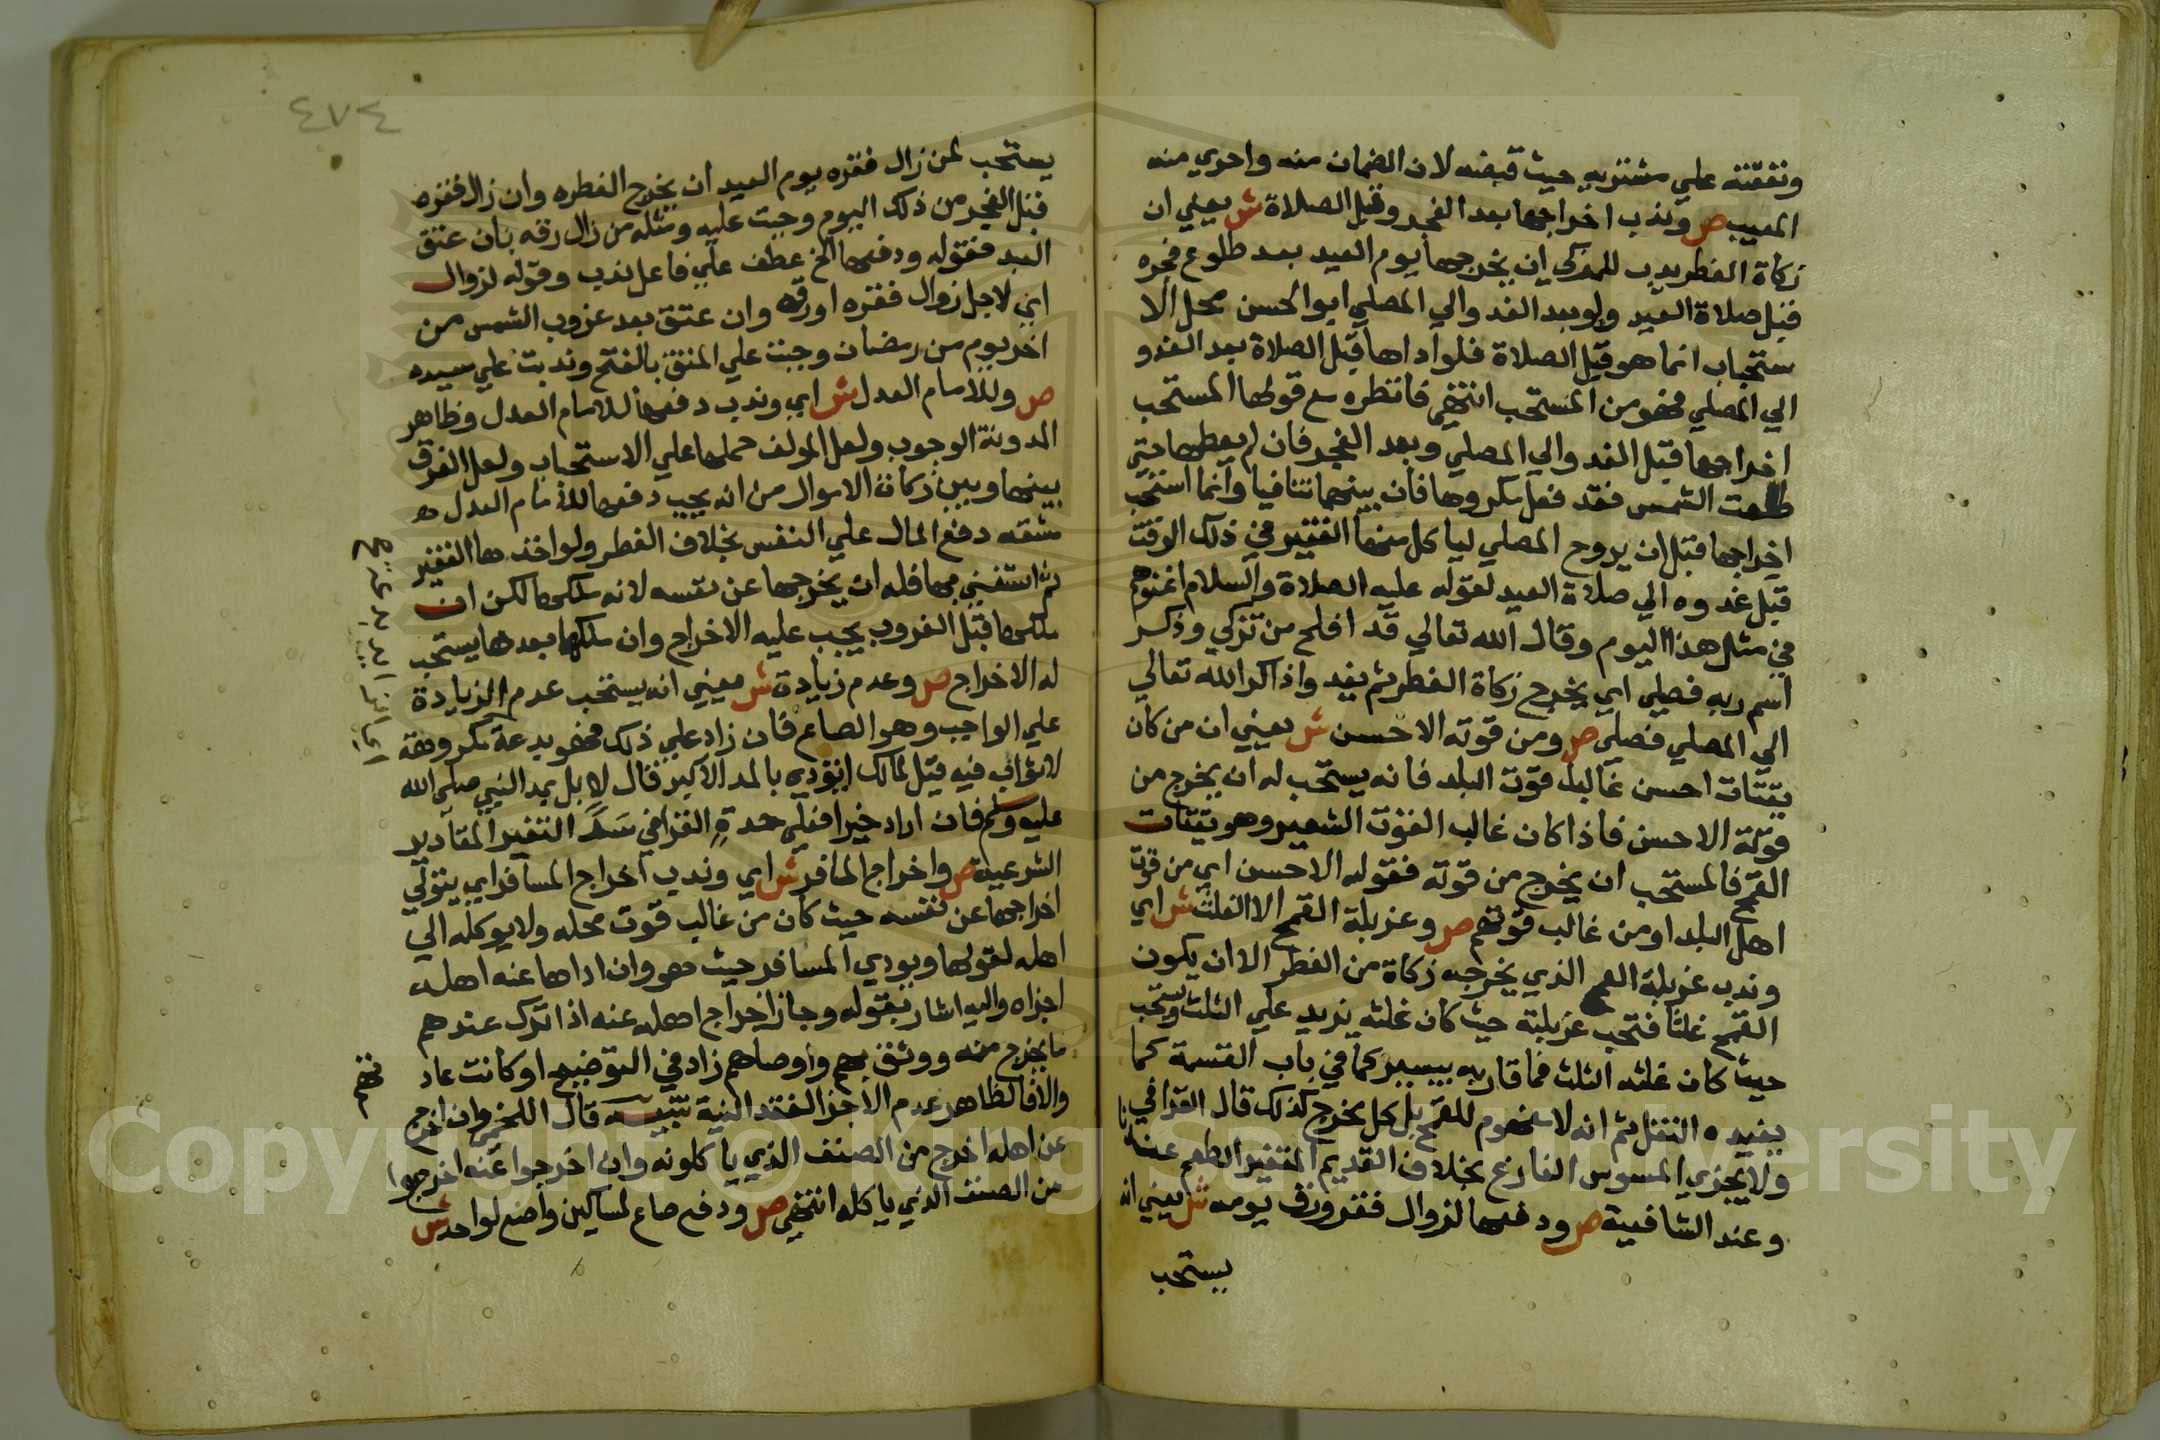 ونفقته علي مشتريه حيث قبضه لان الضمان منه واحري منه
المعيب ص وندب اخراجها بعد الفجر وقبل الصلاة ش يعني ان
زكاة الفطر يندب للمزكي ان يخرجها يوم العيد بعد طلوع فجره
قبل صلاة العيد ولو بعد الغد والي المصلي ابو الحسن محل الا
ستحباب انما هو قبل الصلاة فلو اداها قبل الصلاة بعد الغدو
الي المصلي فهو من المستحب انتهي فانظره مع قولها المستحب
اخراجها قبل الغد والي المصلي وبعد الفجر فان لم يعطها حتي
طلعت الشمس فقد فعل مكروها فان بينهما تنافيا وانما استحب
اخراجها قبل ان يروح المصلي ليا كل منها الفقير في ذلك الوقت
قبل غدوه الي صلاة العيد لقوله عليه الصلاة والسلام اغنوهم
في مثل هذا اليوم وقال الله تعالي قد افلح من تزكي وذكر
اسم ربه فصلي اي يخرج زكاة الفطر ثم يغد واذاكرا لله تعالي
الي المصلي فصلي ص ومن قوته الاحسن ش يعني ان من كان
يقتات احسن غالب قوت البلد فانه يستحب له ان يخرج من
قوته الاحسن فاذا كان غالب القوت الشعير وهو يقتات
القمح فالمستحب ان يخرج من قوته فقوله الاحسن اي من قوت
اهل البلد او من غالب قوتهم ص وغربلة القمح الا الغلث ش اي
وندب غربلة القمح الذي يخرجه زكاة من الفطر الا ان يكون
القمح غلثا فتجب غربلته حيث كان غلثه يزيد علي الثلث ويستحب
حيث كان غلثه الثلث فما قاربه بيسير كما في باب القسمة كما
يفيده النقل ثم انه لا مفهوم للقمح بل كل يخرج كذلك قال القرافي
ولا يجزي المسوس الفارغ بخلاف القديم المتغير الطعم عندنا
وعند الشافعية ص ودفعها لزوال فقر ورق يومه ش يعني انه
يستحب
٤٧٤
يستحب لمن زال فقره يوم العيد ان يخرج الفطره وان زال فقره
قبل الفجر من ذلك اليوم وجبت عليه ومثله من زال رقه بان عتق
العبد فقوله ودفعها الخ عطف علي فاعل ندب وقوله لزوال
اي لاجل زوال فقره او رقه وان عتق بعد غروب الشمس من
اخر يوم من رمضان وجبت علي المعتق بالفتح وندبت علي سيده
ص وللامام العدل ش اي وندب دفعها للامام العدل وظاهر
المدونة الوجوب ولعل المولف حملها علي الاستحباب ولعل الفرق
بينها وبين زكاة الاموال من انه يجب دفعها للامام العدل
مشقه دفع المال علي النفس بخلاف الفطر ولو اخذها الفقير
ثم استغني بها فله ان يخرجها عن نفسه لانه ملكها لكن ان
ملكها قبل الغروب يجب عليه الاخراج وان ملكها بعدها يستحب
له الاخراج ص وعدم زيادة ش معيني انه يستحب عدم الزيادة
علي الواجب وهو الصاع فان زاد علي ذلك فهو بدعة مكروهة
لا ثواب فيه قيل لمالك ايؤدي بالمد الاكبر قال لا بل بمد النبي صلي الله
عليه وسلم فان اراد خيرا فعلي حدة القرافي سدا لتغير المقادير
الشرعية ص واخراج المسافر ش اي وندب اخراج المسافر اي يتولي
اخراجها عن نفسه حيث كان من غالب قوت محله ولا يوكله الي
اهله لقولها ويودي المسافر حيث هو وان اداها عنه اهله
اجزاه واليه اشار بقوله وجاز اخراج اهله عنه اذا ترك عندهم
ما يخرج منه ووثق بهم واوصاهم زاد في التوضيح او كانت عاد
تهم
والا فالظاهر عدم الاجزا لفقد النية تنبيه قال اللخمي وان اخرج
عن اهله اخرج من الصنف الذي ياكلونه وان اخرجوا عنه اخرجوا
من الصنف الذي ياكله انتهي ص ودفع صاع لمساكين واصع لواحد ش
Copyright © King Saud University